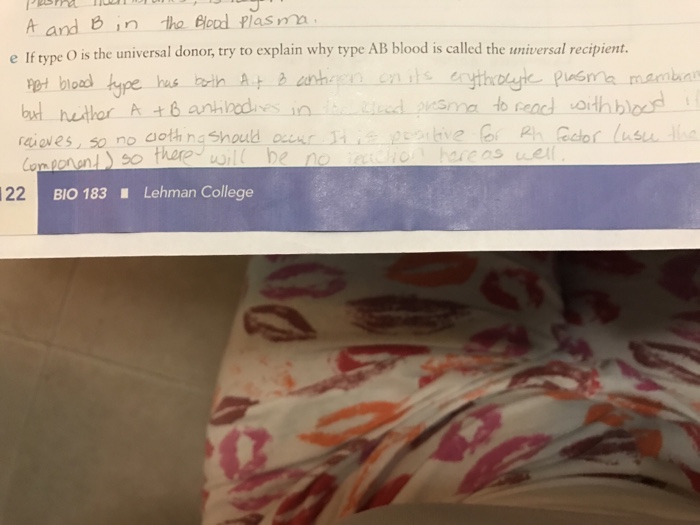 A and B in the Blood Plasma.
e If type O is the universal donor, try to explain why type AB blood is called the universal recipient.
blood type has both A + B antigen on its erythrocyte Plasma membran
but neither A + B antibodies in to react with blood
, so no clotting should occur. It is positive for Rh factor (usu the
component) so there will be no reaction here as well.
122 BIO 183 ■ Lehman College